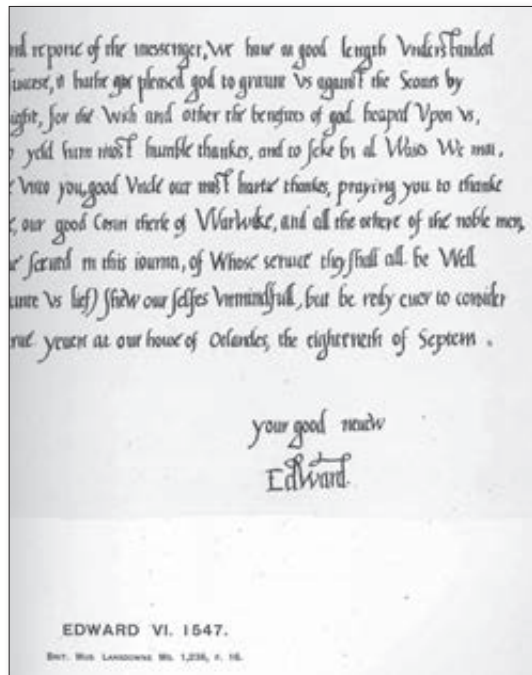 nd reporte of the messenger, We haue at good length Vnderstanded
pleased god to graunte Vs against the Scottes by
ight, for the Wich and other the benefites of god heaped Vpon Vs,
yeld him most humble thankes, and to seke bi al Waies We mai,
Vnto you, good Vncle our most hartie thankes, praying you to thanke
, our good Cosin therle of VVarwike, and all the othere of the noble men,
serued in this iournei, of Whose seruice they shall all be Well
Vs lief) shew our selfes Vnmindfull, but be redy euer to consider
yeuen at our house of Otlandes, the eighteneth of Septem .
your good neuew
Edward.
EDWARD VI. 1547.
BRIT. MUS LANSDOWNE MS. 1,236, F. 16.